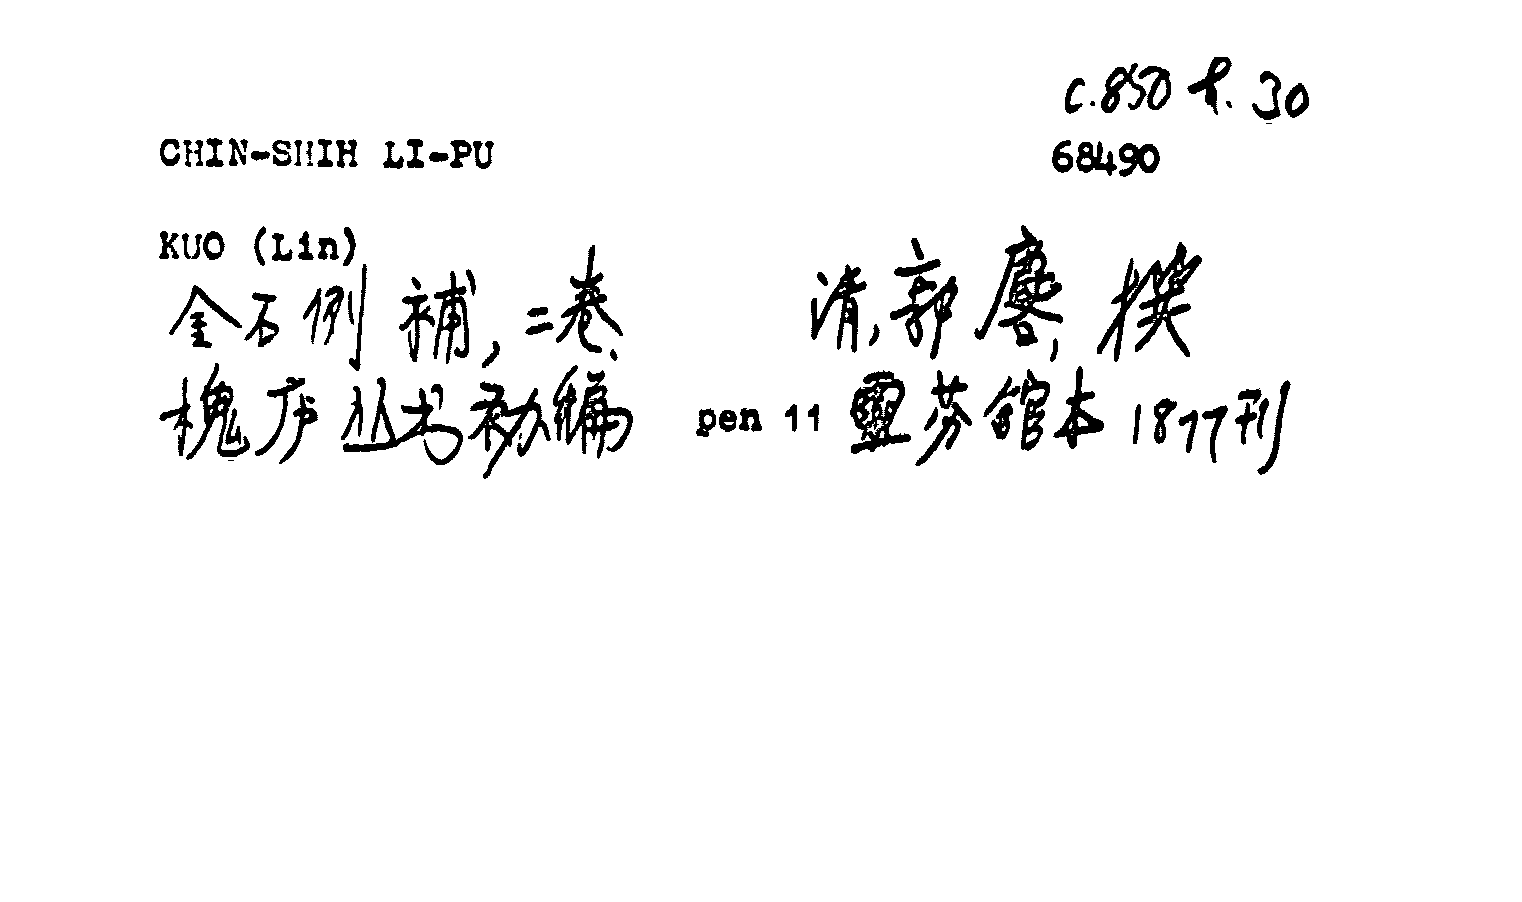 c.850 f. 30
CHIN-SHIH LI-PU 68490
KUO (Lin)
金石例補, 二卷. 清, 郭麐, 撰
槐庐丛书初編 pen 11 靈芬館本 1877刊